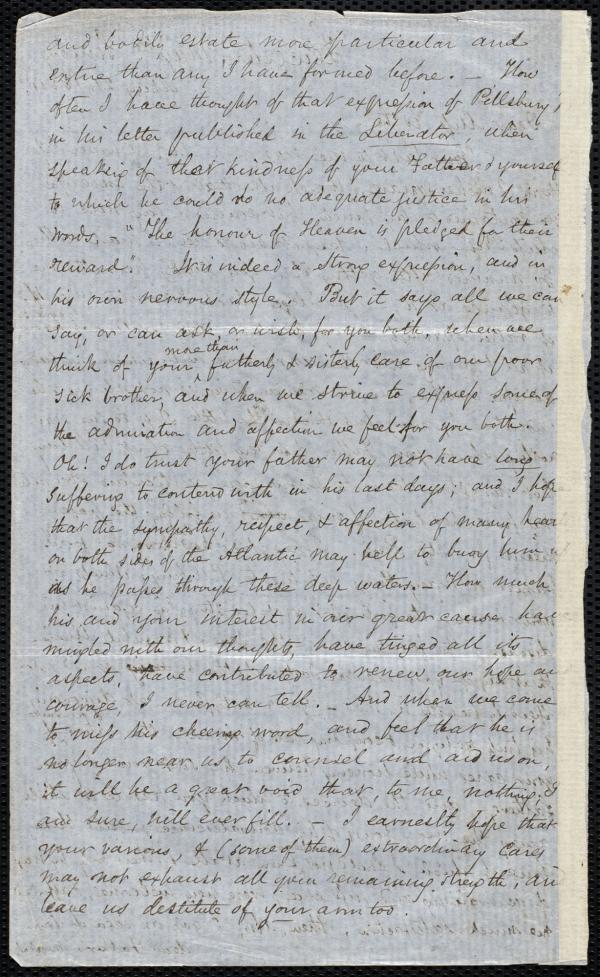 and bodily estate more particular and
entire than any I have formed before. – How
often I have thought of that expression of Pillsbury,
in his letter published in the Liberator, when
speaking of that kindness of your Father & yourself
to which he could do no adequate justice in his
words. – "The honour of Heaven is pledged for their
reward". It is indeed a strong expression, and in
his own nervous style. But it says all we can
say, or can ask or wish, for you both, when we
think of your more than fatherly & sisterly care of our poor
sick brother, and when we strive to express some of
the admiration and affection we feel for you both.
Oh! I do trust your father may not have long
suffering to contend with in his last days; and I hope
that the sympathy, respect, & affection of many hear
on both sides of the Atlantic may help to buoy him u
as he passes through these deep waters. – How much
his and your interest in our great cause have
mingled with our thoughts, have tinged all its
aspects, have contributed to renew our hope an
courage, I never can tell. – And when we come
to miss his cheering word, and feel that he is
no longer near us to counsel and aid us on,
it will be a great void that, to me, nothing, I
am sure, will ever fill. – I earnestly hope that
your various, & (some of them) extraordinary cares
may not exhaust all your remaining strength, and
leave us destitute of your arm too.